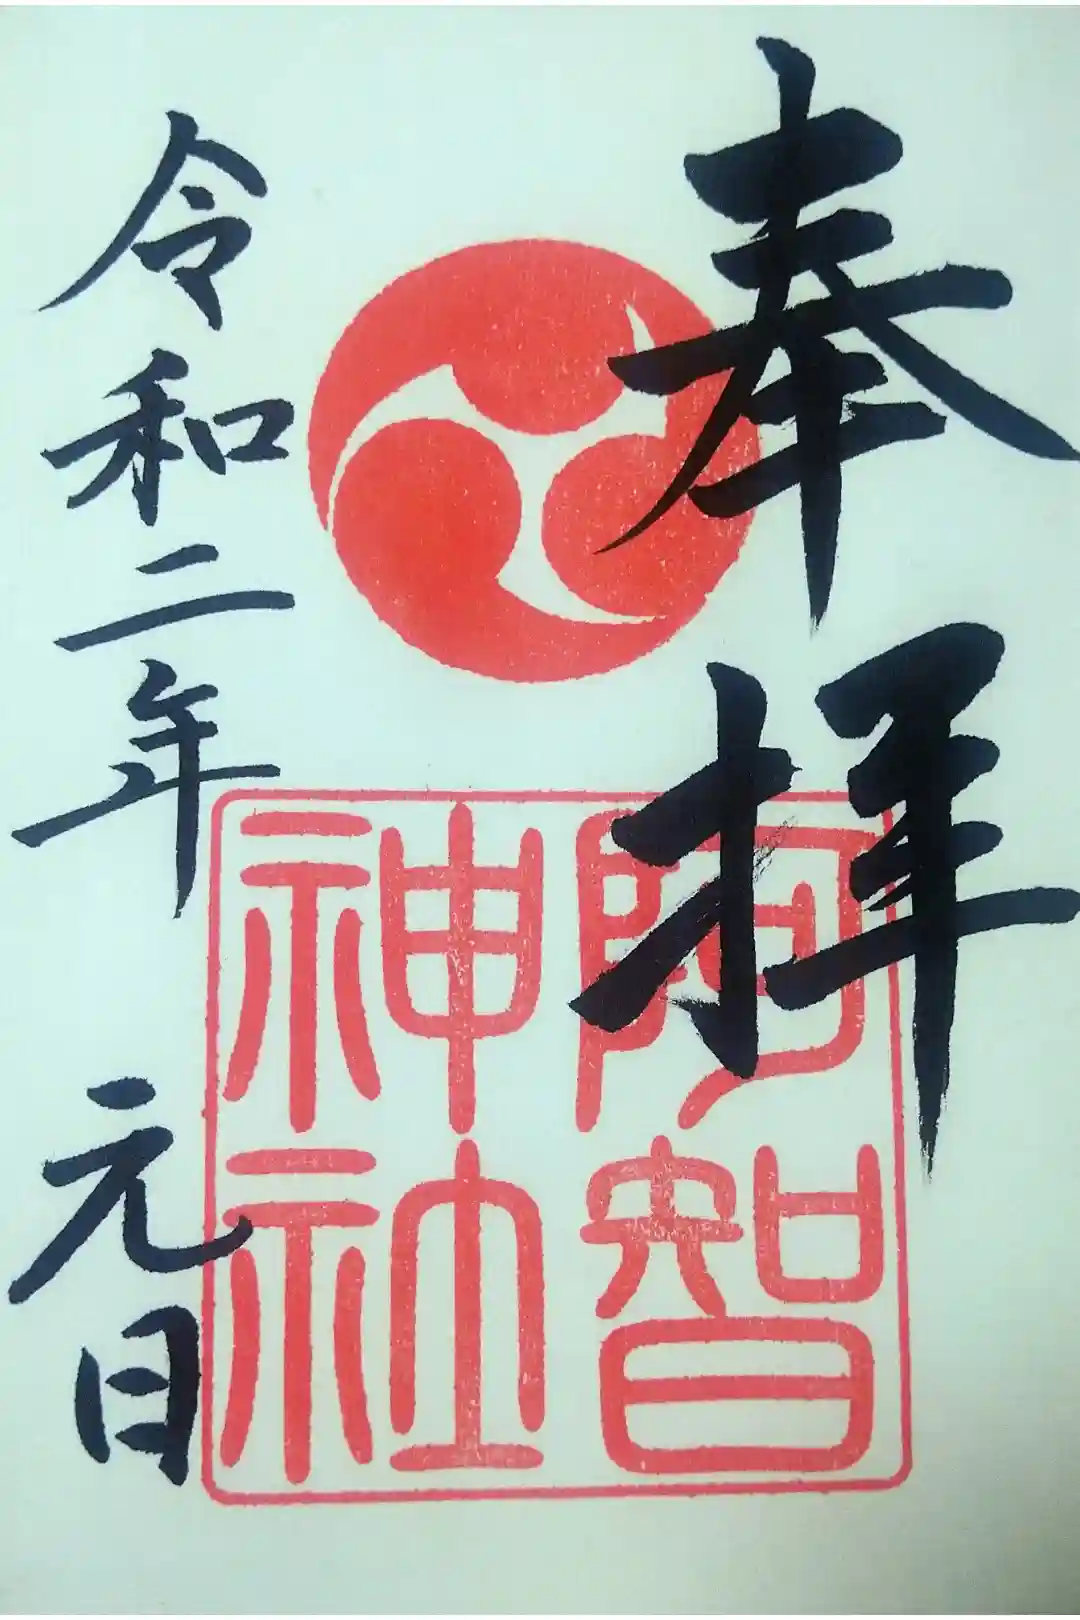 奉拝
阿智
神社
令和二年 元日